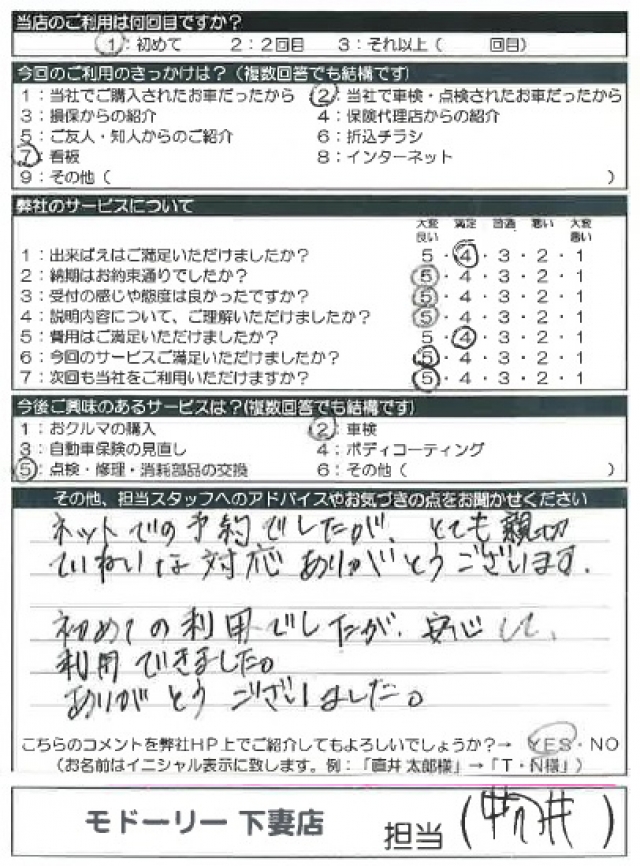 当店のご利用は何回目ですか?
1:初めて 2:2回目 3:それ以上( 回目)
今回のご利用のきっかけは?(複数回答でも結構です)
1:当社でご購入されたお車だったから 2:当社で車検・点検されたお車だったから
3:損保からの紹介 4:保険代理店からの紹介
5:ご友人・知人からのご紹介 6:折込チラシ
7:看板 8:インターネット
9:その他( )
弊社のサービスについて
大変良い 満足 普通 悪い 大変悪い
1:出来ばえはご満足いただけましたか? 5・4・3・2・1
2:納期はお約束通りでしたか? 5・4・3・2・1
3:受付の感じや態度は良かったですか? 5・4・3・2・1
4:説明内容について、ご理解いただけましたか? 5・4・3・2・1
5:費用はご満足いただけましたか? 5・4・3・2・1
6:今回のサービスご満足いただけましたか? 5・4・3・2・1
7:次回も当社をご利用いただけますか? 5・4・3・2・1
今後ご興味のあるサービスは?(複数回答でも結構です)
1:おクルマの購入 2:車検
3:自動車保険の見直し 4:ボディコーティング
5:点検・修理・消耗部品の交換 6:その他( )
その他、担当スタッフへのアドバイスやお気づきの点をお聞かせください
ネットでの予約でしたが、とても親切
ていねいな対応ありがとうございます.
初めての利用でしたが、安心して、
利用できました。
ありがとうございました。
こちらのコメントを弊社HP上でご紹介してもよろしいでしょうか?→ YES・NO
(お名前はイニシャル表示に致します。例:「直井 太郎様」→「T・N様」)
モドーリー 下妻店 担当 ( 井)